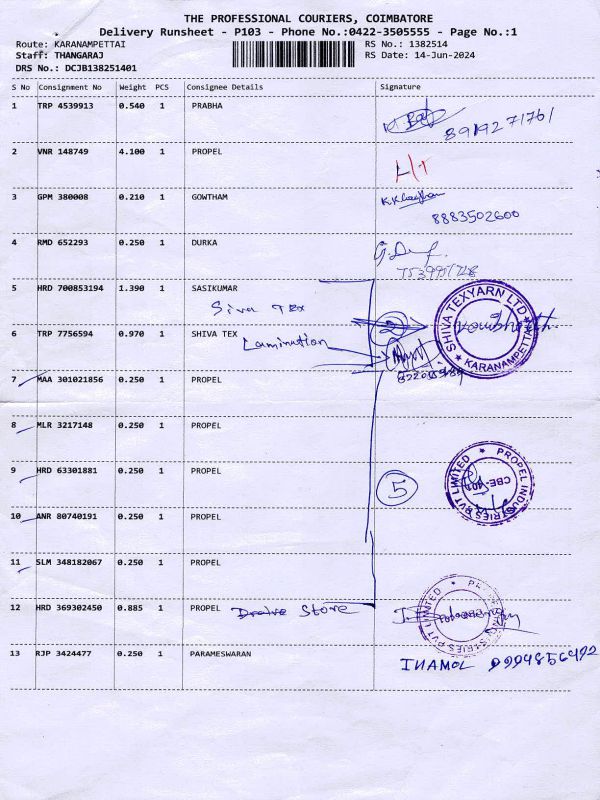 THE PROFESSIONAL COURIERS, COIMBATORE
Delivery Runsheet - P103 - Phone No.:0422-3505555 - Page No.:1
Route: KARANAMPETTAI RS No.: 1382514
Staff: THANGARAJ RS Date: 14-Jun-2024
DRS No.: DCJB138251401
S No Consignment No Weight PCS Consignee Details Signature
1 TRP 4539913 0.540 1 PRABHA
2 VNR 148749 4.100 1 PROPEL
3 GPM 380008 0.210 1 GOWTHAM
8883502600
4 RMD 652293 0.250 1 DURKA
5 HRD 700853194 1.390 1 SASIKUMAR
Siva Tex
2
SHIVA TEXYARN LTD
KARANAMPETTAI
6 TRP 7756594 0.970 1 SHIVA TEX
Lamination
7 MAA 301021856 0.250 1 PROPEL
8 MLR 3217148 0.250 1 PROPEL
9 HRD 63301881 0.250 1 PROPEL
5
PROPEL INDUSTRIES PVT LIMITED
10 ANR 80740191 0.250 1 PROPEL
11 SLM 348182067 0.250 1 PROPEL
12 HRD 369302450 0.885 1 PROPEL Store
13 RJP 3424477 0.250 1 PARAMESWARAN
INAMOL 9994856492